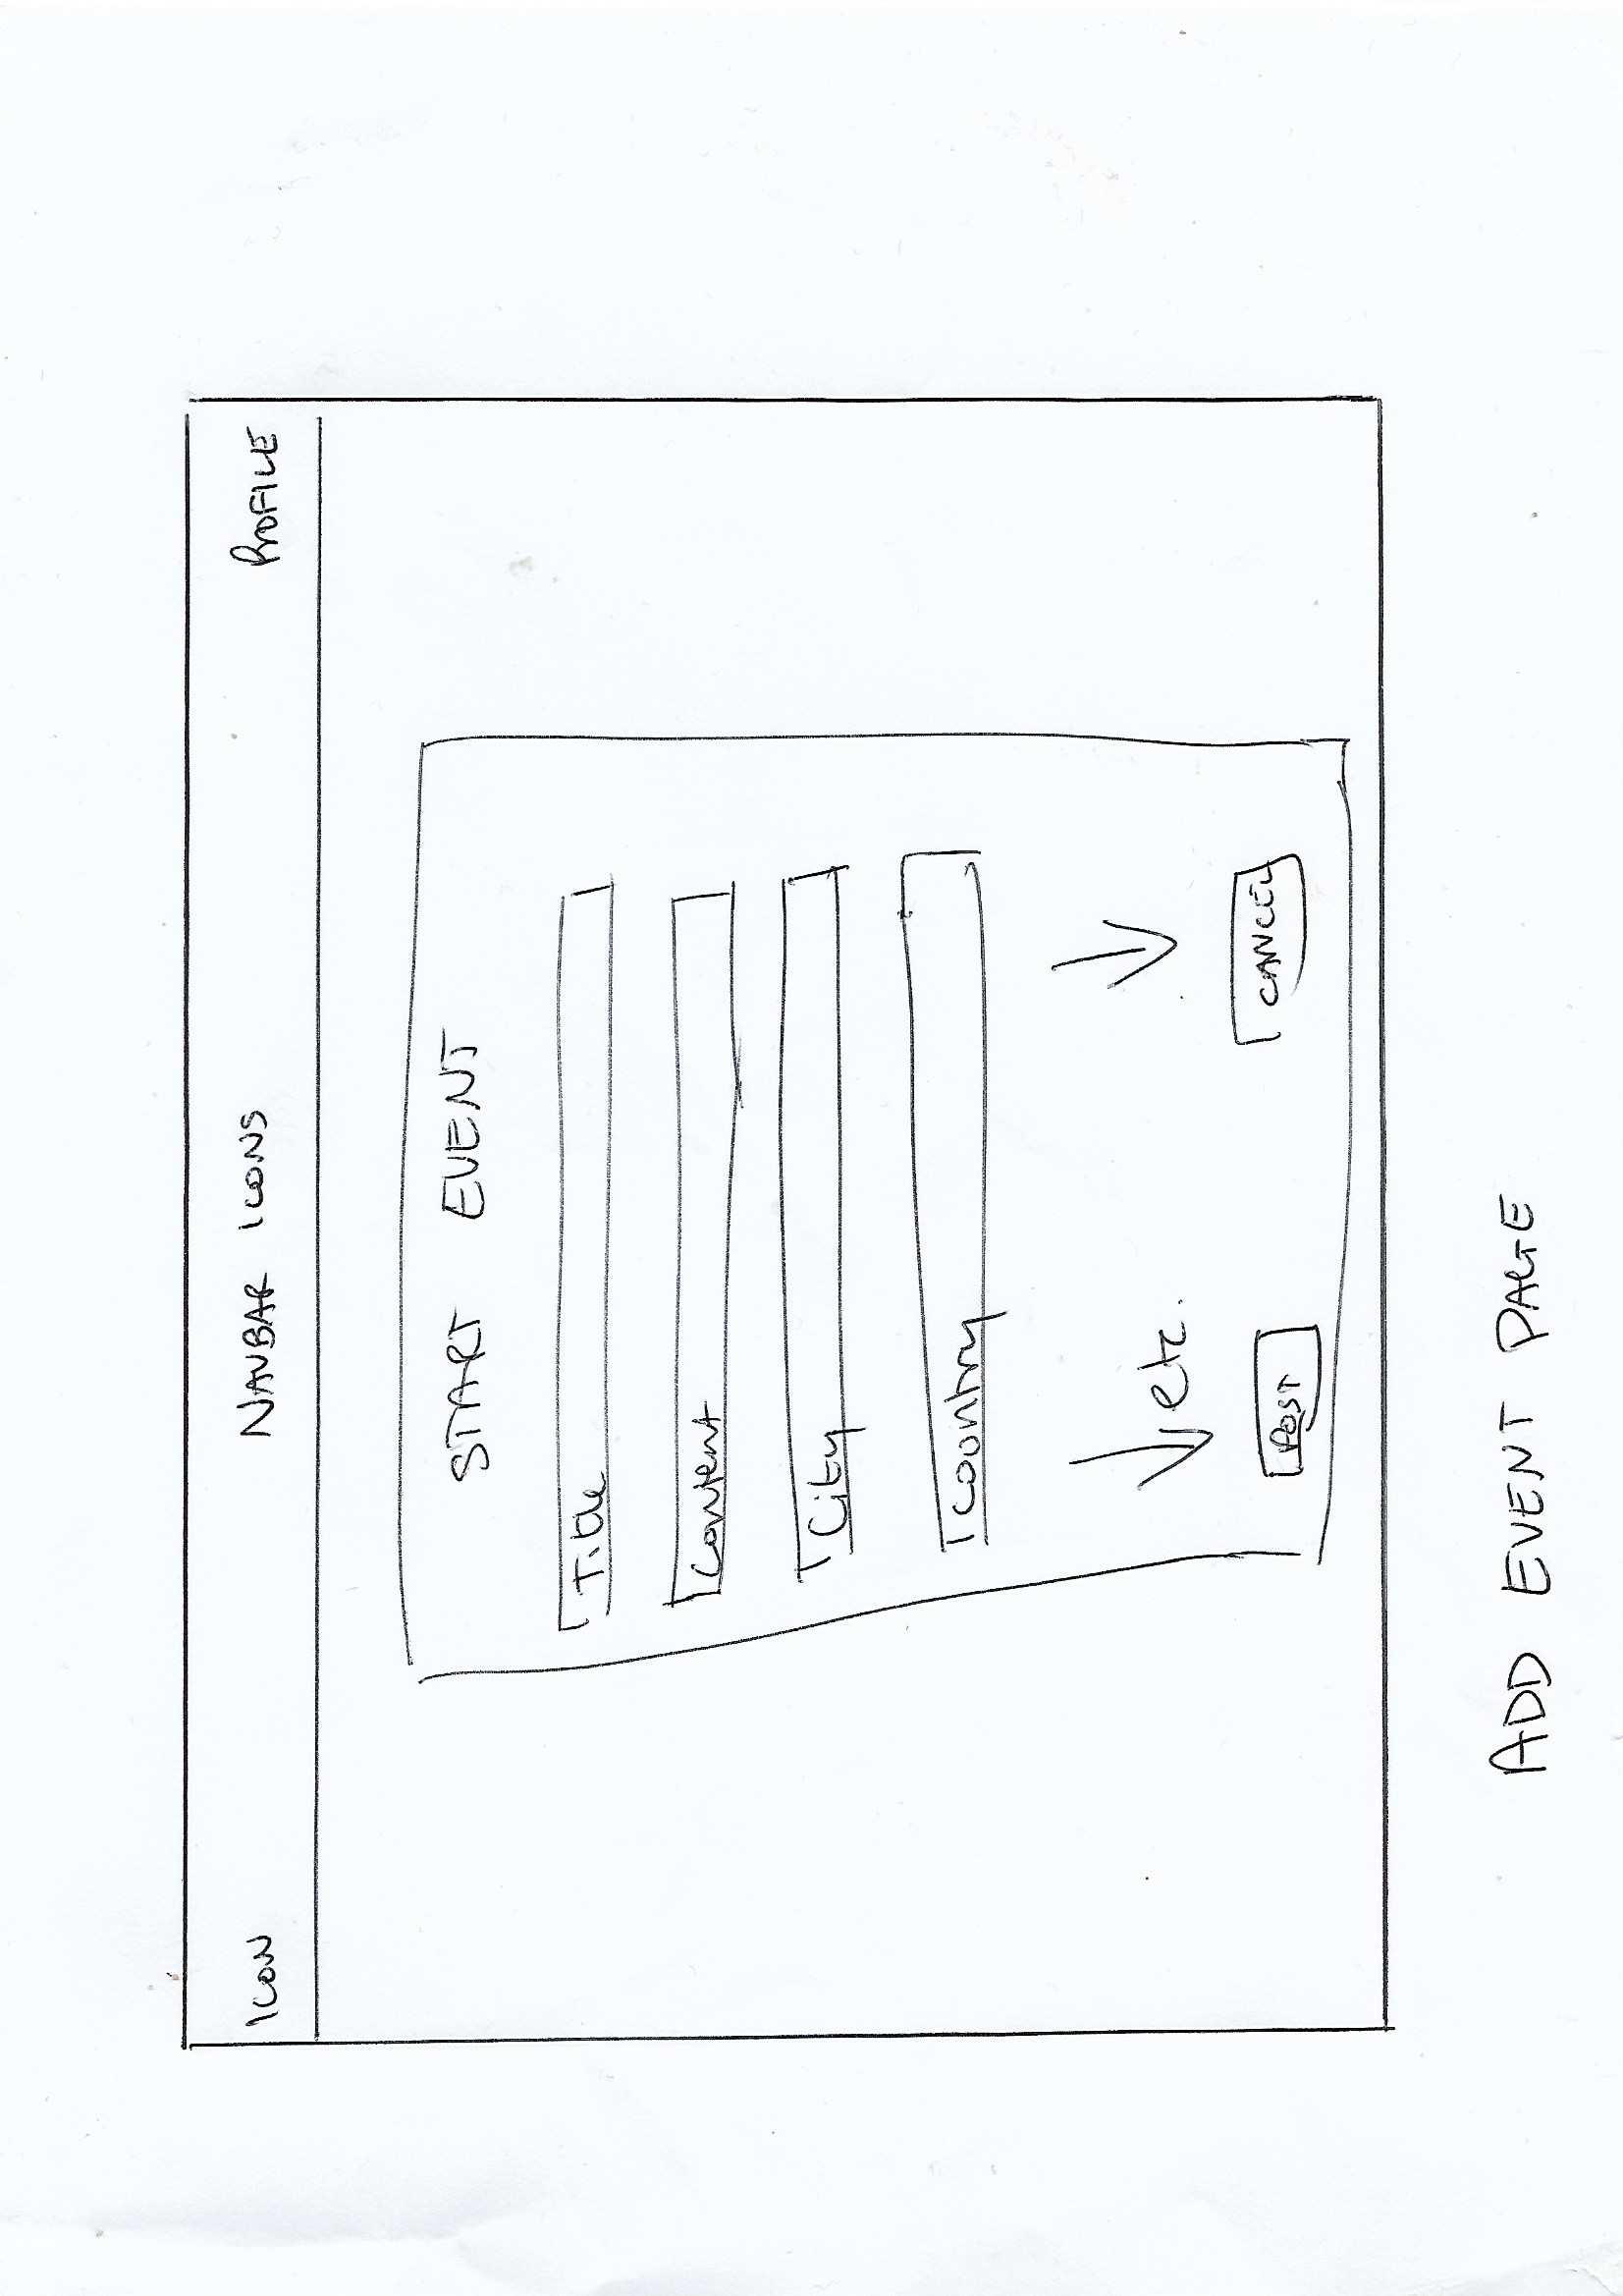 ICON NAVBAR ICONS PROFILE
START EVENT
Title
Content
City
Country
etc.
POST CANCEL
ADD EVENT PAGE